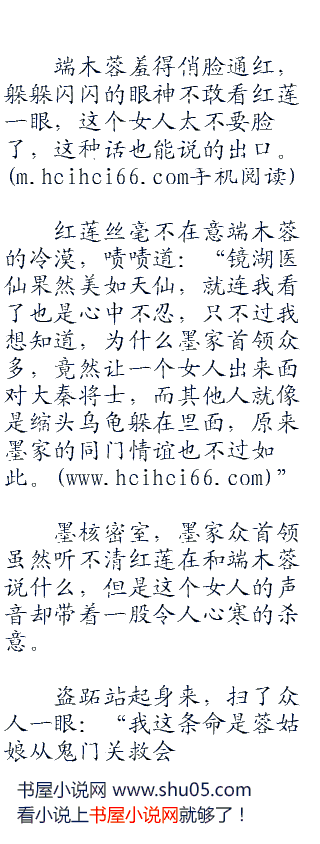 端木蓉羞得俏脸通红，
躲躲闪闪的眼神不敢看红莲
一眼，这个女人太不要脸
了，这种话也能说的出口。
(m.hcihci66.com手机阅读)
红莲丝毫不在意端木蓉
的冷漠，啧啧道：“镜湖医
仙果然美如天仙，就连我看
了也是心中不忍，只不过我
想知道，为什么墨家首领众
多，竟然让一个女人出来面
对大秦将士，而其他人就像
是缩头乌龟躲在里面，原来
墨家的同门情谊也不过如
此。(www.hcihci66.com)”
墨核密室，墨家众首领
虽然听不清红莲在和端木蓉
说什么，但是这个女人的声
音却带着一股令人心寒的杀
意。
盗跖站起身来，扫了众
人一眼：“我这条命是蓉姑
娘从鬼门关救会
书屋小说网 www.shu05.com
看小说上书屋小说网就够了！